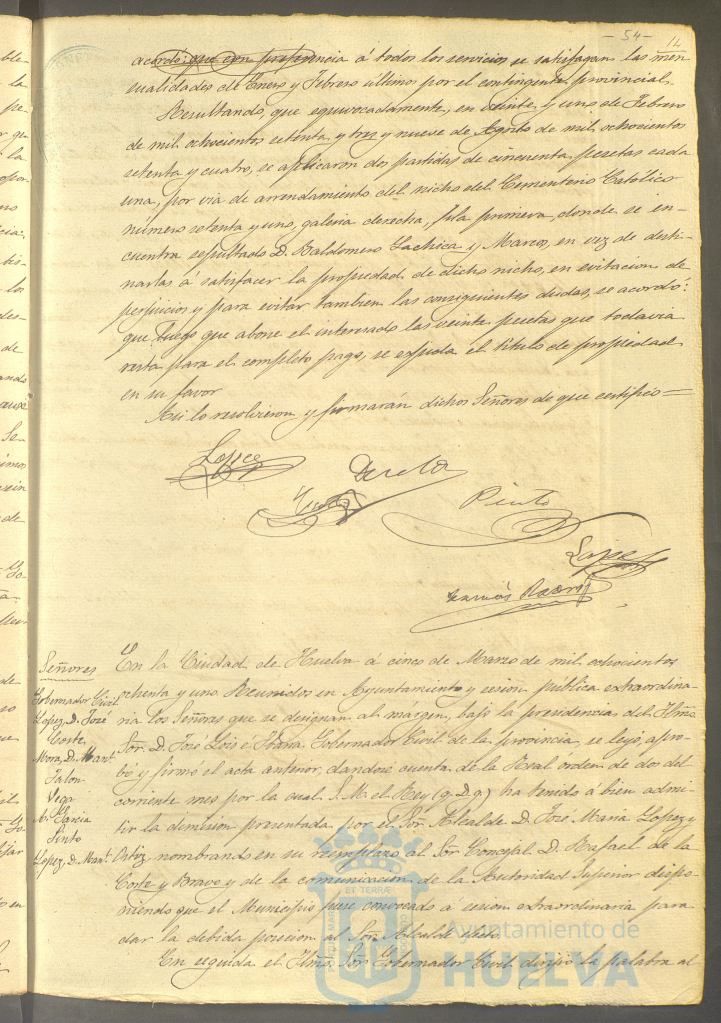 - 54 -
14
acordó: que con preferencia á todos los servicios se satisfagan las men-
sualidades de Enero y Febrero últimos por el contingente provincial.
Resultando, que equivocadamente, en veinte y uno de Febrero
de mil ochocientos setenta y tres y nueve de Agosto de mil ochocientos
setenta y cuatro, se aplicaron dos partidas de cincuenta pesetas cada
una, por via de arrendamiento del nicho del Cementerio Católico
número setenta y uno, galeria derecha, fila primera, donde se en-
cuentra sepultado D. Baldomero Lachica y Marco, en vez de desti-
narlas á satisfacer la propiedad de dicho nicho, en evitacion de
perjuicios y para evitar tambien las consiguientes dudas, se acordó:
que luego que abone el interesado las veinte pesetas que todavia
resta para el completo pago, se espida el título de propiedad
en su favor
Asi lo resolvieron y firmarán dichos Señores de que certifico=
Lopez
Pinto
Lopez
Señores
Gobernador Civil
Lopez, D. José
Corte
Mora, D. Manl.
Jalon
Vega
Garcia
Pinto
Lopez, D. Manl.
En la Ciudad de Huelva á cinco de Marzo de mil ochocientos
ochenta y uno Reunidos en Ayuntamiento y sesion pública extraordina-
ria los Señores que se designan al márgen, bajo la presidencia del Ilmo.
Sor. D. José Lois é Ibarra Gobernador Civil de la provincia, se leyó, apro-
bó y firmó el acta anterior, dandose cuenta de la Real orden de dos del
corriente mes por la cual S. M. el Rey (q. D. g.) ha tenido á bien admi-
tir la dimision presentada por el Sor. Alcalde D. José Maria Lopez y
Ortiz, nombrando en su reemplazo al Sor. Concejal D. Rafael de la
Corte y Bravo y de la comunicacion de la Autoridad Superior dispo-
niendo que el Municipio fuese convocado á sesion extraordinaria para
dar la debida posesion al Sor. Alcalde electo.
En seguida el Ilmo. Sor. Gobernador Civil dirijió la palabra al
Ayuntamiento de
HUELVA